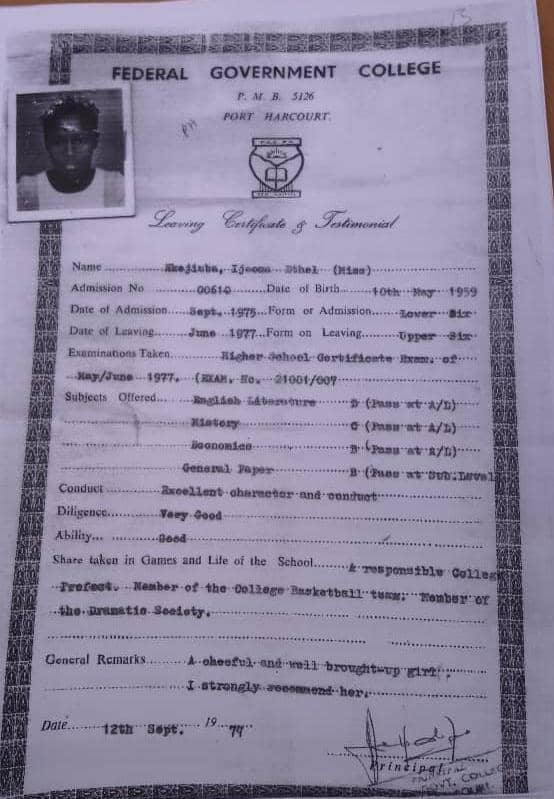 13
FEDERAL GOVERNMENT COLLEGE
P. M. B. 5126
PORT HARCOURT.
PH
Leaving Certificate & Testimonial
Name ............ Nkejiuba, Ijeoma Ethel (Miss)
Admission No ............ 00610 ........ Date of Birth ..... 10th May 1959
Date of Admission ..... Sept. 1975 .. Form or Admission ...... Lower Six
Date of Leaving ..... June 1977 ... Form on Leaving ........ Upper Six
Examinations Taken ........ Higher School Certificate Exam. of
May/June 1977. (EXAM. No. 21001/007
Subjects Offered... English Literature D (Pass at A/L)
History C (Pass at A/L)
Economics B (Pass at A/L)
General Paper B (Pass at Sub.Level
Conduct ............ Excellent character and conduct
Diligence........... Very Good
Ability... ......... Good
Share taken in Games and Life of the School....... A responsible Colleg
Prefect. Member of the College Basketball team. Member of
the Dramatic Society.
General Remarks ......... A cheeful and well brought-up girl.
I strongly recommend her.
Date........ 12th Sept. 19 77
Principal
PRINCIPAL
GOVT. COLLEGE